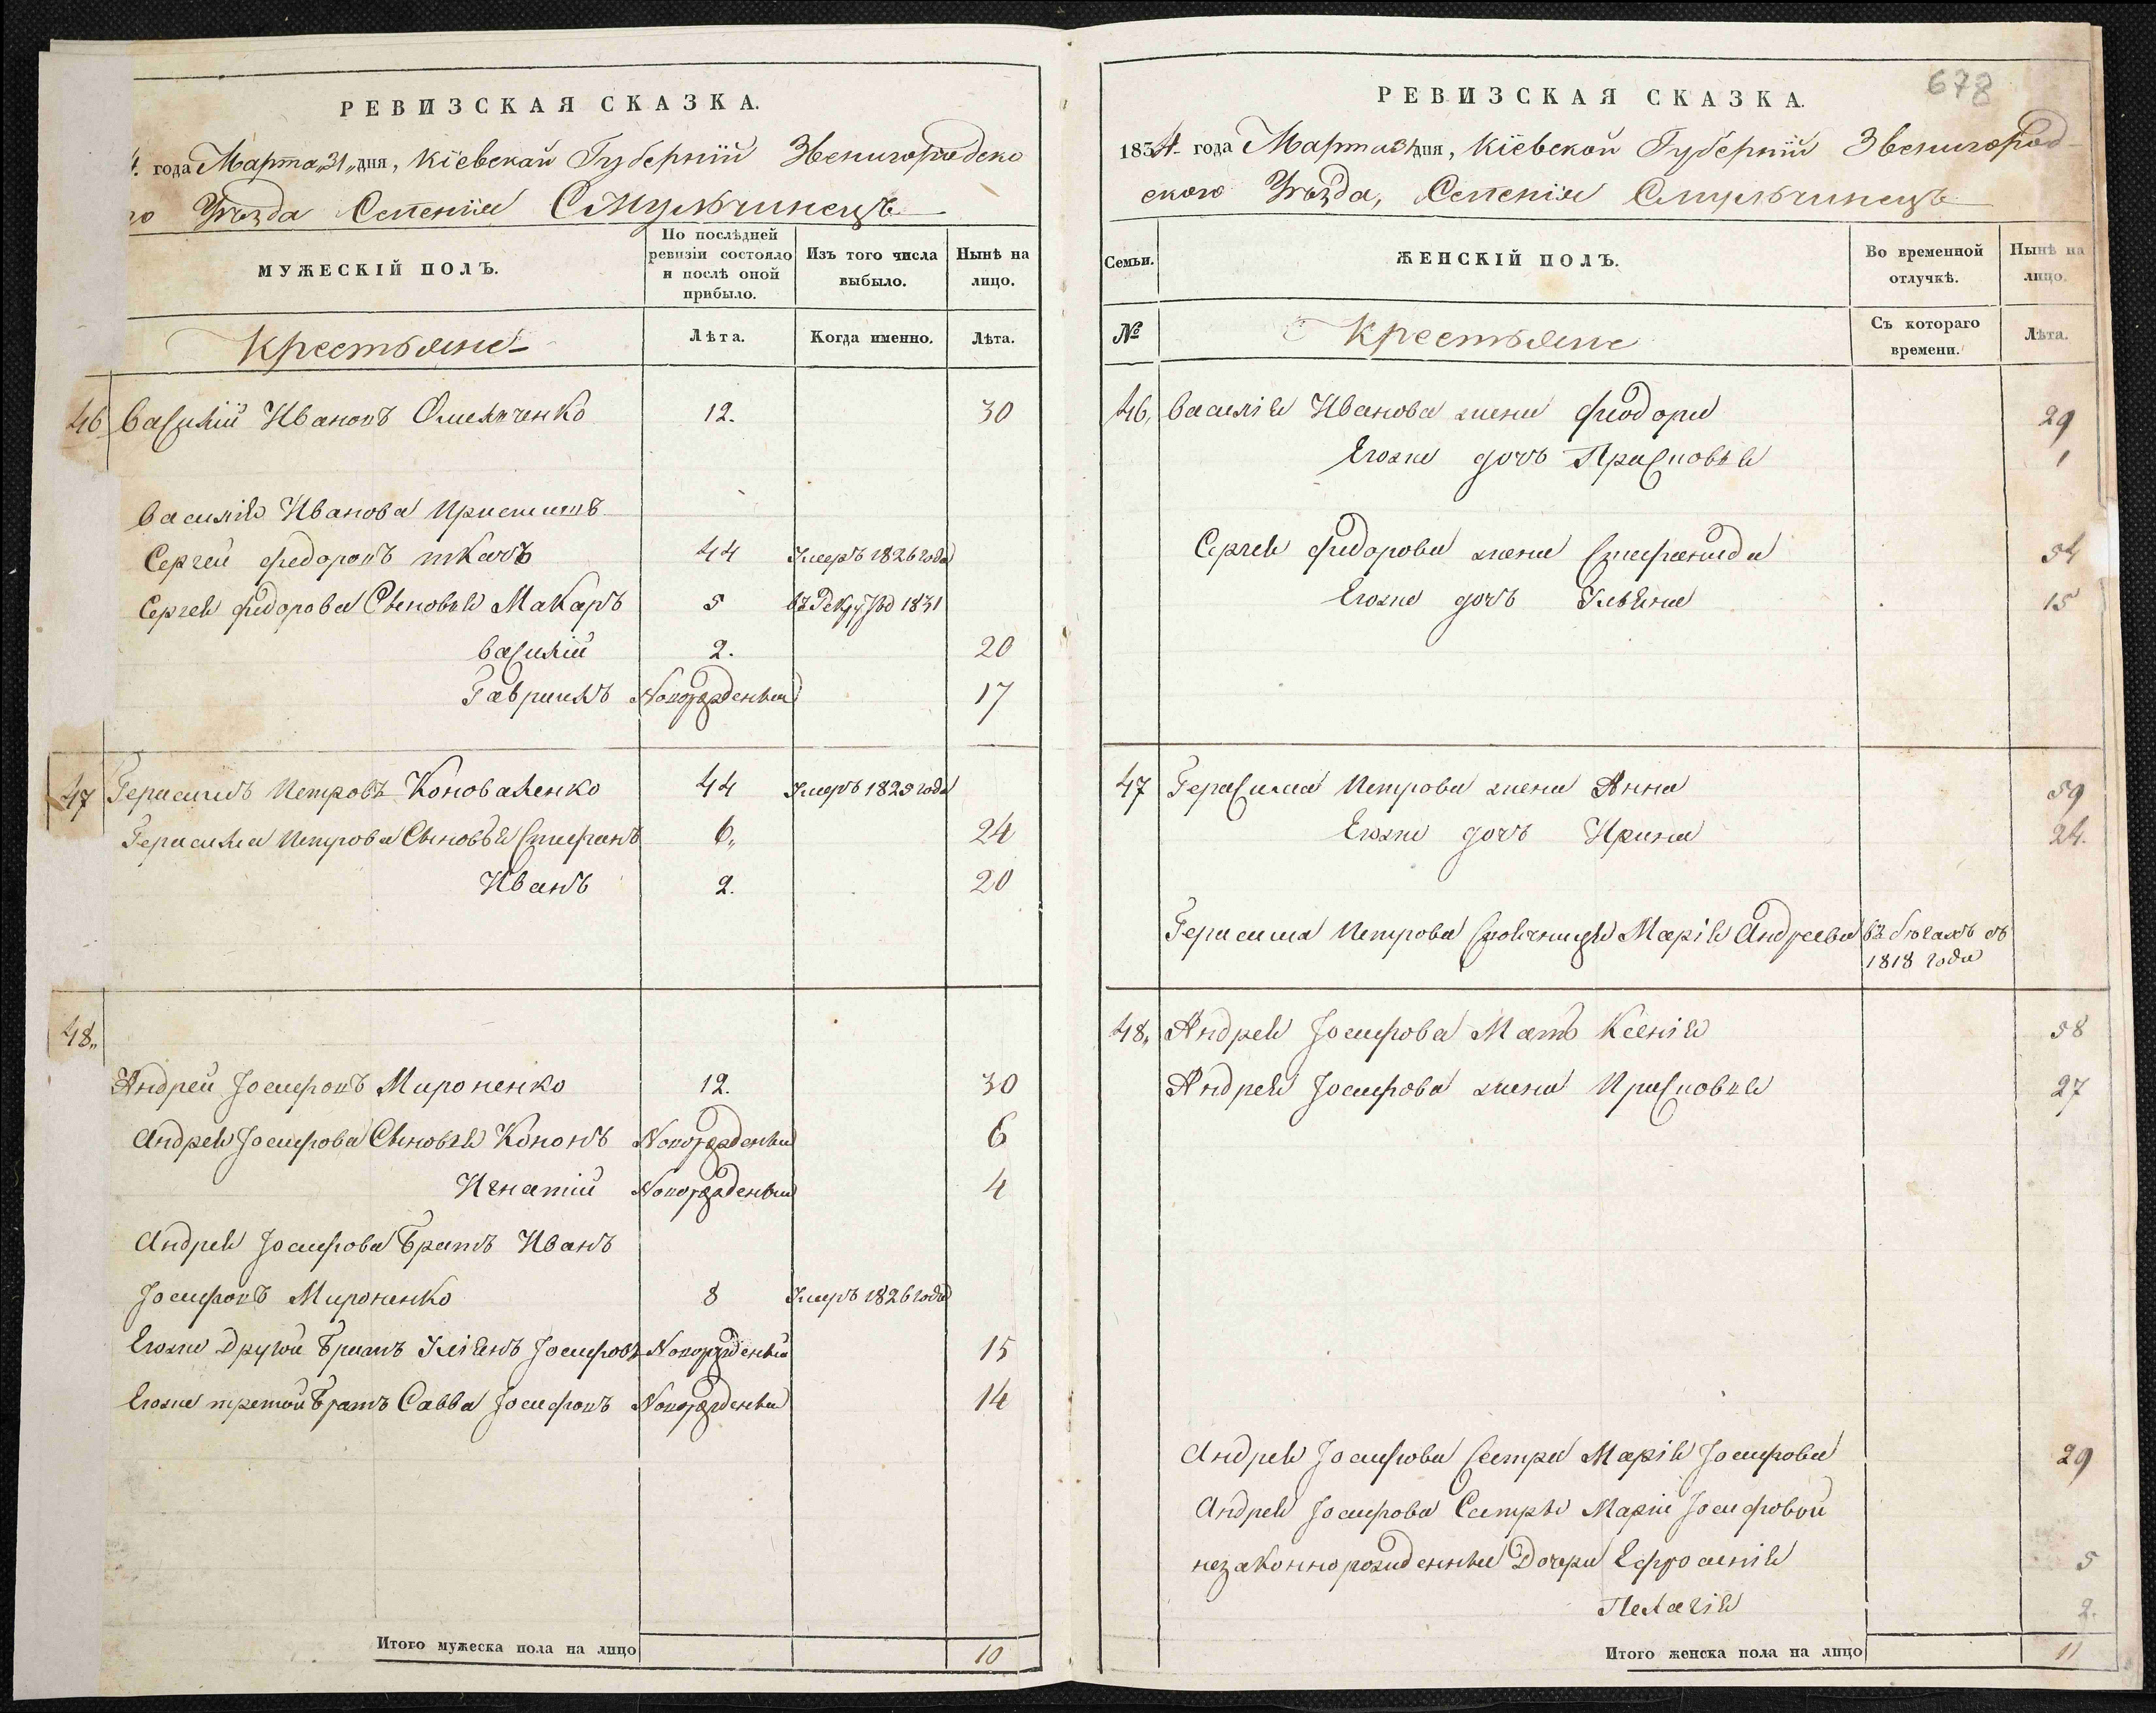 РЕВИЗСКАЯ СКАЗКА.
года Марта „31„ дня, Кіевской Губерніи Звенигородско
го Уѣзда Селенія Смульчинецъ
МУЖЕСКІЙ ПОЛЪ.
По послѣдней ревизіи состояло и послѣ оной прибыло.
Изъ того числа выбыло.
Нынѣ на лицо.
Крестьяне
Лѣта.
Когда именно.
Лѣта.
46 Василій Ивановъ Омельченко 12. 30
Василія Иванова
Сергей Федоровъ ткачъ 44 Умеръ 1826 года
Сергея Федорова Сыновья Макаръ 5 въ 1831
Василій 2. 20
Гавриилъ Новорожденный 17
47 Герасимъ Петровъ Коноваленко 44 Умеръ 1825 года
Герасима Петрова Сыновья Стефанъ 6„ 24
Иванъ 2. 20
48„
Андрей Іосифовъ Мироненко 12. 30
Андрея Іосифова Сыновья Кононъ Новорожденный 6
Игнатій Новорожденный 4
Андрея Іосифова Братъ Иванъ
Іосифовъ Мироненко 8 Умеръ 1826 года
Егоже Другой Братъ Іосифовъ Новорожденный 15
Егоже третій Братъ Савва Іосифовъ Новорожденный 14
Итого мужеска пола на лицо 10
678
РЕВИЗСКАЯ СКАЗКА.
1834 года Марта 31 дня, Кіевской Губерніи Звенигород
ского Уѣзда, Селенія Смульчинецъ
Семьи.
ЖЕНСКІЙ ПОЛЪ.
Во временной отлучкѣ.
Нынѣ на лицо.
№
Крестьяне
Съ котораго времени.
Лѣта.
46, Василія Иванова жена Феодора 29
Егоже дочь Прасковья 1
Сергея Федорова жена Стефанида 54
Егоже дочь Ульяна 15
47 Герасима Петрова жена Анна 59
Егоже дочь Ирина 24.
Герасима Петрова Своячница Марія Андреева въ бѣгахъ съ
1818 года
48„ Андрея Іосифова Мать Ксенія 58
Андрея Іосифова жена Прасковья 27
Андрея Іосифова Сестра Марія Іосифова 29
Андрея Іосифова Сестры Маріи Іосифовой
незаконнорожденные Дочери Ефросинія 5
Пелагія 2.
Итого женска пола на лицо 11